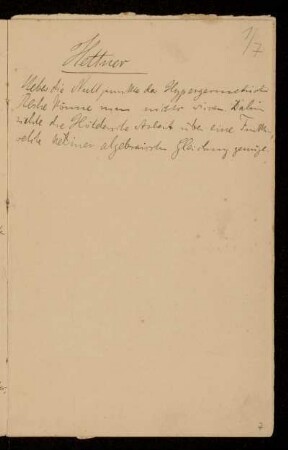 1/7
Hettner
Ueber die Nullpunkte der Hypergeometrischen
Reihe könne man nichts
die Hölder'sche Arbeit über eine Funktion,
welche keiner algebraischen Gleichung genüge.
7